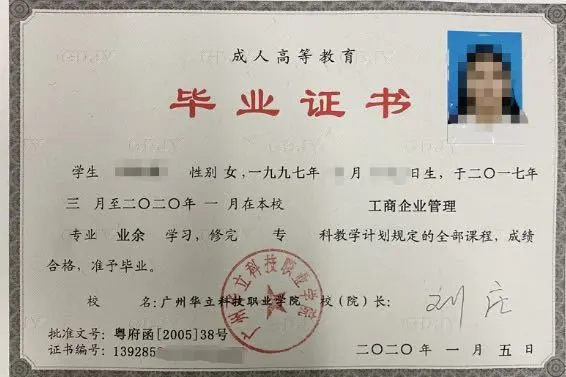 成人高等教育
毕业证书
学生 性别 女,一九九七年 月 日生,于二〇一七年
三 月至二〇二〇年 一 月在本校 工商企业管理
专业 业余 学习,修完 专 科教学计划规定的全部课程,成绩
合格,准予毕业。
校 名:广州华立科技职业学院 校(院)长:
广州华立科技职业学院
批准文号:粤府函[2005]38号
证书编号:139285
二〇二〇年 一 月 五 日